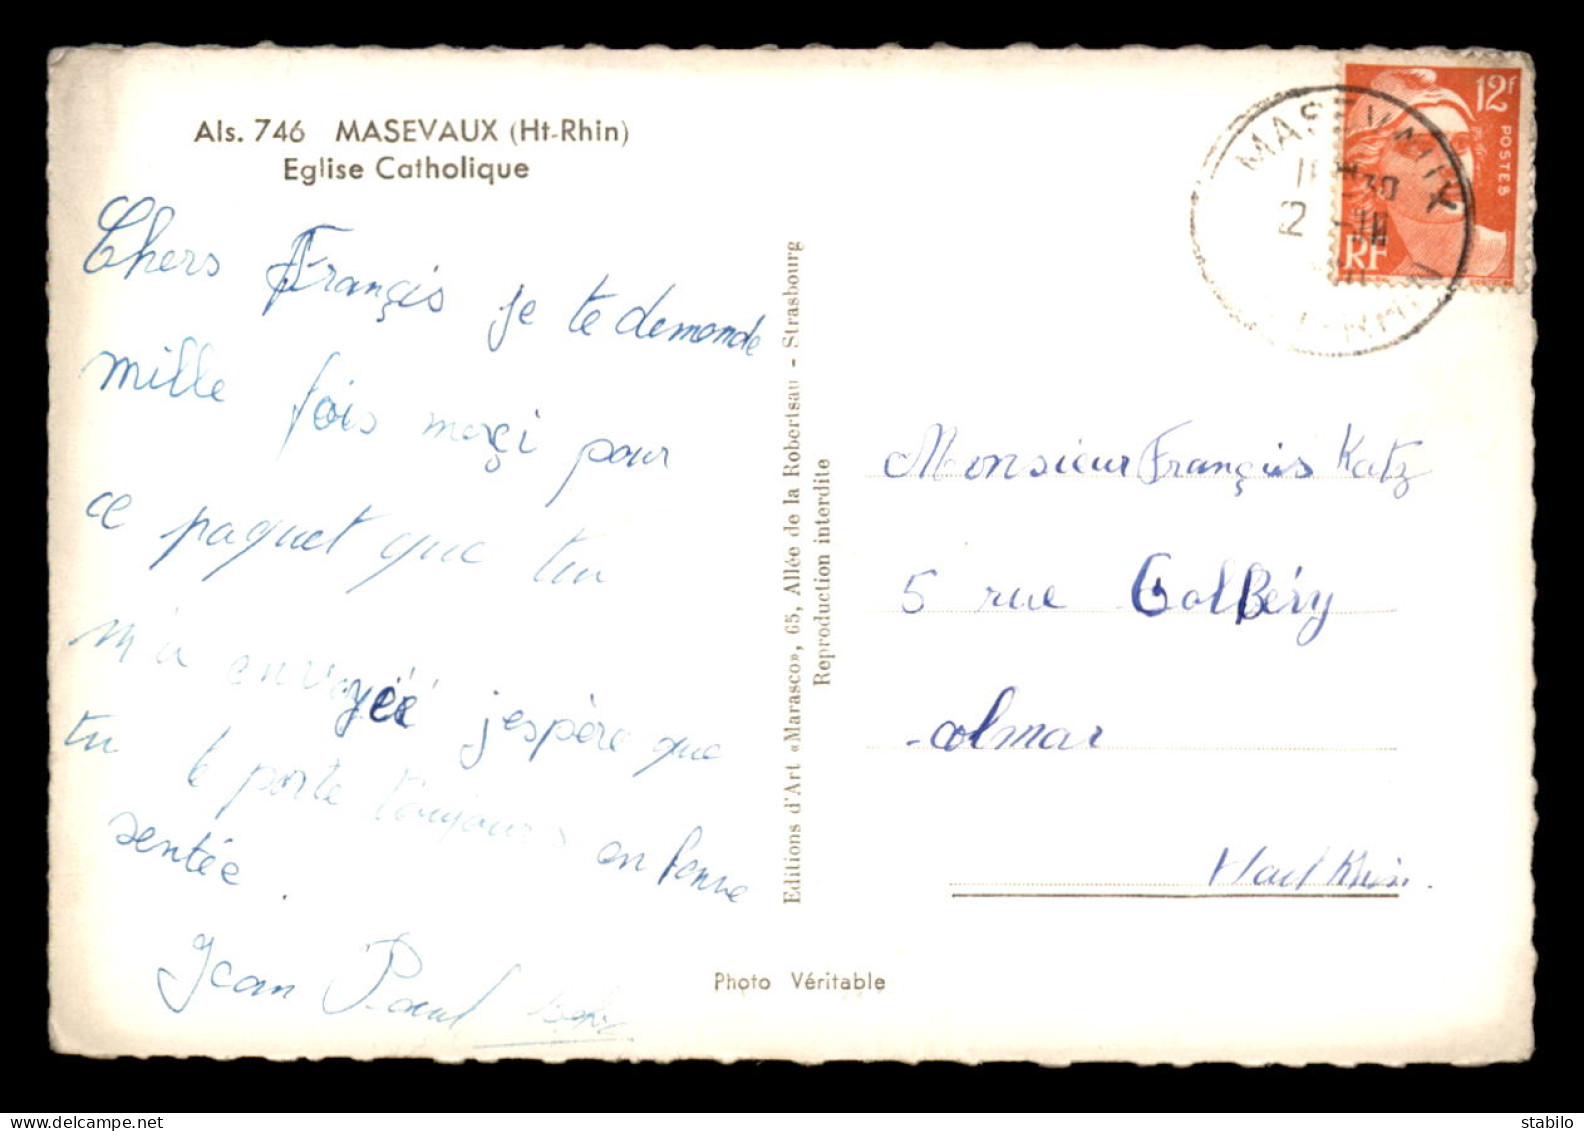 Als. 746 MASEVAUX (Ht-Rhin)
Eglise Catholique
Chers Françis je te demande
mille fois merçi pour
ce paquet que tu
m'a envoyéé j'espère que
tu le porte toujours en bonne
sentée.
Jean Paul
Editions d'Art «Marasco», 65, Allée de la Robertsau - Strasbourg
Reproduction interdite
Photo Véritable
12f
POSTES
RF
MASEVAUX
Monsieur Françis Katz
5 rue GolBéry
Colmar
Haut Rhin.
delcampe.net
stabilo